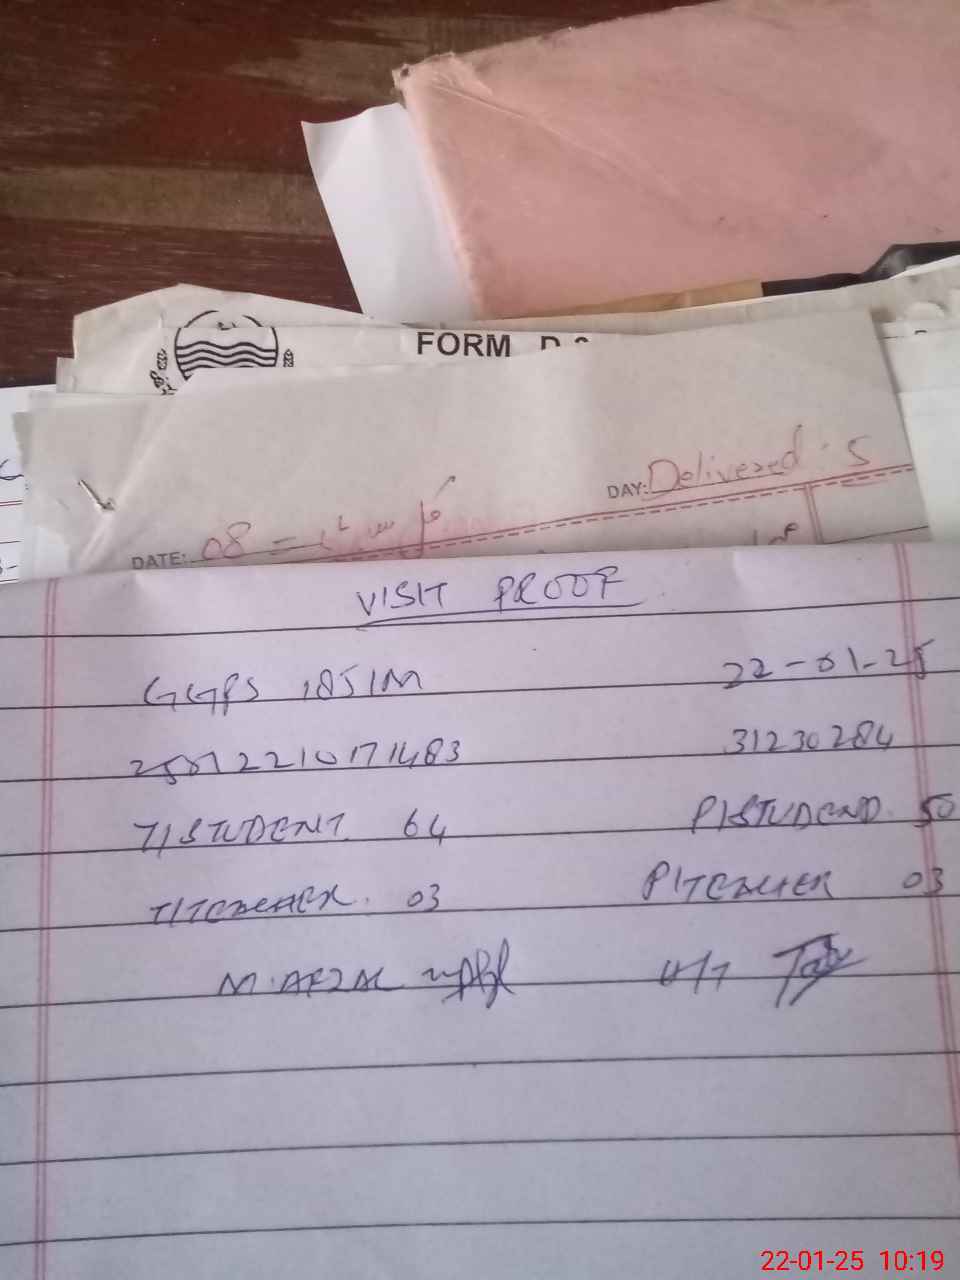 FORM D
DAY: Delivered : 5
DATE: 08 =
VISIT PROOF
GGPS 185/M 22-01-25
25012210171483 31230284
T/STUDENT 64 P/STUDEND 50
T/TEACHER. 03 P/TEACHER 03
M.AFZAL H/T
22-01-25 10:19